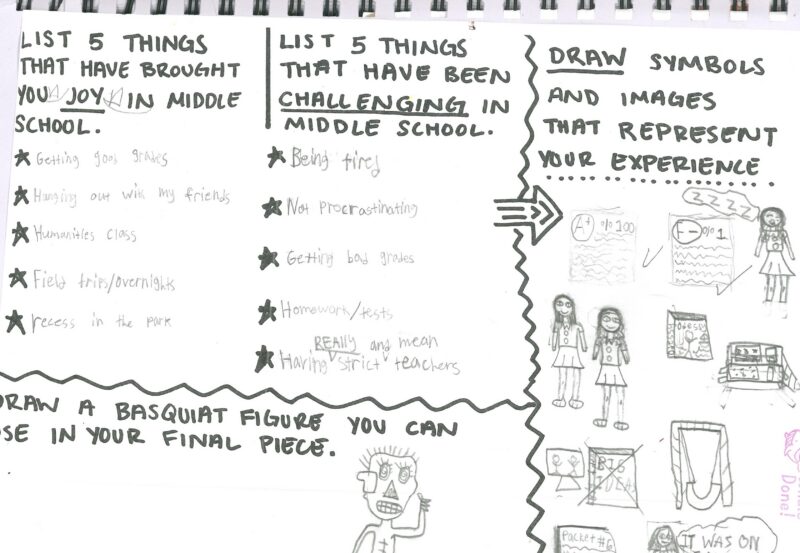 LIST 5 THINGS
THAT HAVE BROUGHT
YOU JOY IN MIDDLE
SCHOOL.
Getting good grades
Hanging out with my friends
Humanities class
Field trips/overnights
recess in the park
LIST 5 THINGS
THAT HAVE BEEN
CHALLENGING IN
MIDDLE SCHOOL.
Being tired
Not procrastinating
Getting bad grades
Homework/tests
Having REALLY strict and mean teachers
DRAW SYMBOLS
AND IMAGES
THAT REPRESENT
YOUR EXPERIENCE
Z Z Z Z
A+ % 100
F- % 1
BIG
Packet #6
IT WAS ON
DRAW A BASQUIAT FIGURE YOU CAN
USE IN YOUR FINAL PIECE.
Done!